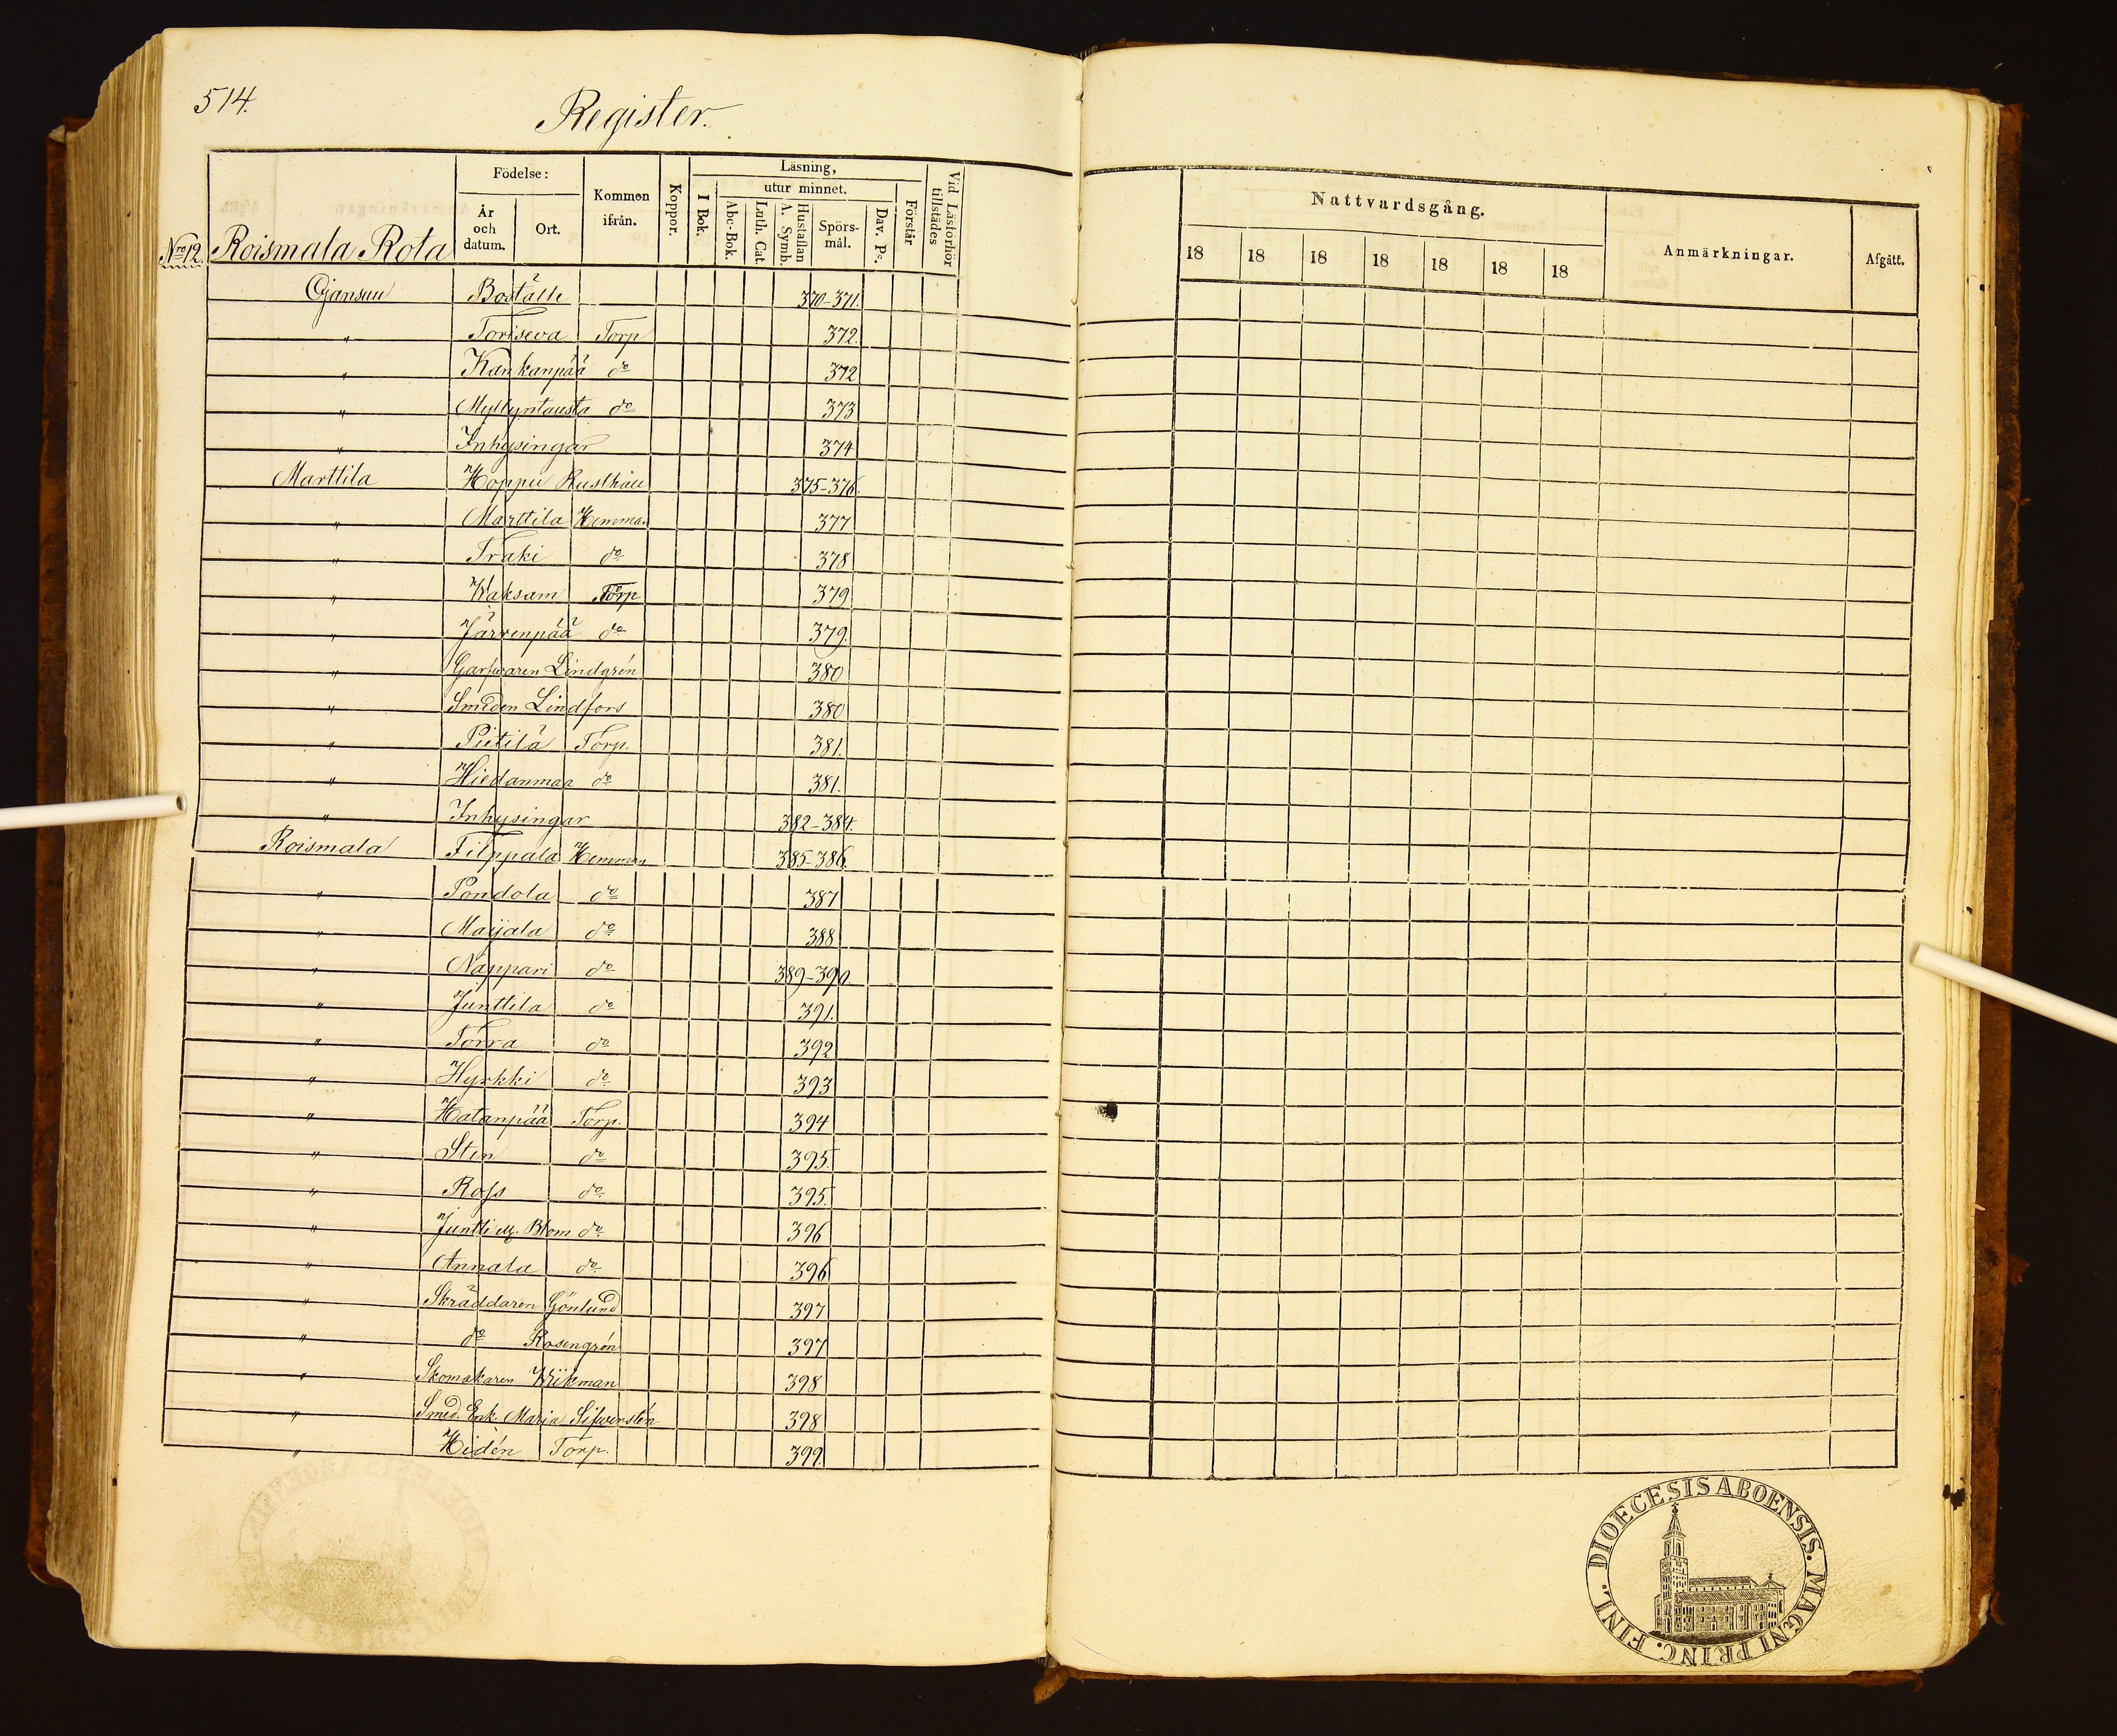 514.
Register.
Nro 12. Roismala Rota
Födelse:
År och datum.
Ort.
Kommen ifrån.
Koppor.
Läsning,
I Bok.
utur minnet.
Abc-Bok.
Luth. Cat.
Hustaflan A. Symb.
Spörs-mål.
Dav. Ps.
Förstår
Vid Läsförhör tillstädes
Nattvardsgång.
18 18 18 18 18 18 18
Anmärkningar.
Afgått.
Ojansuu Boställe 370-371.
" Toriseva Torp 372.
" Kankanpää do 372
" Myllyntausta do 373
" Inhysingar 374
Marttila Hoppu Rusthåll 375-376.
" Marttila Hemman 377
" Traki do 378
" Waksam Torp 379
" Järvenpää do 379.
" Garfvaren Lindgrén 380
" Smeden Lindfors 380
" Pietilä Torp. 381.
" Hiedanmaa do 381.
" Inhysingar 382-384.
Roismala Filppala Hemman 385-386.
" Pondola do 387
" Maijala do 388
" Näppäri do 389-390.
" Junttila do 391.
" Torra do 392
" Hyrkki do 393
" Hatanpää Torp. 394
" Sten do 395.
" Rofs do 395.
" Juntti ell. Blom do 396
" Annala do 396
" Skräddaren Grönlund 397
" do Rosengrén 397
" Skomakaren Wikman 398
" Smed. Enk. Maria Silfverstén 398
" Hidén Torp. 399.
DIOECESIS ABOENSIS. MAGNI PRINC. FINL.